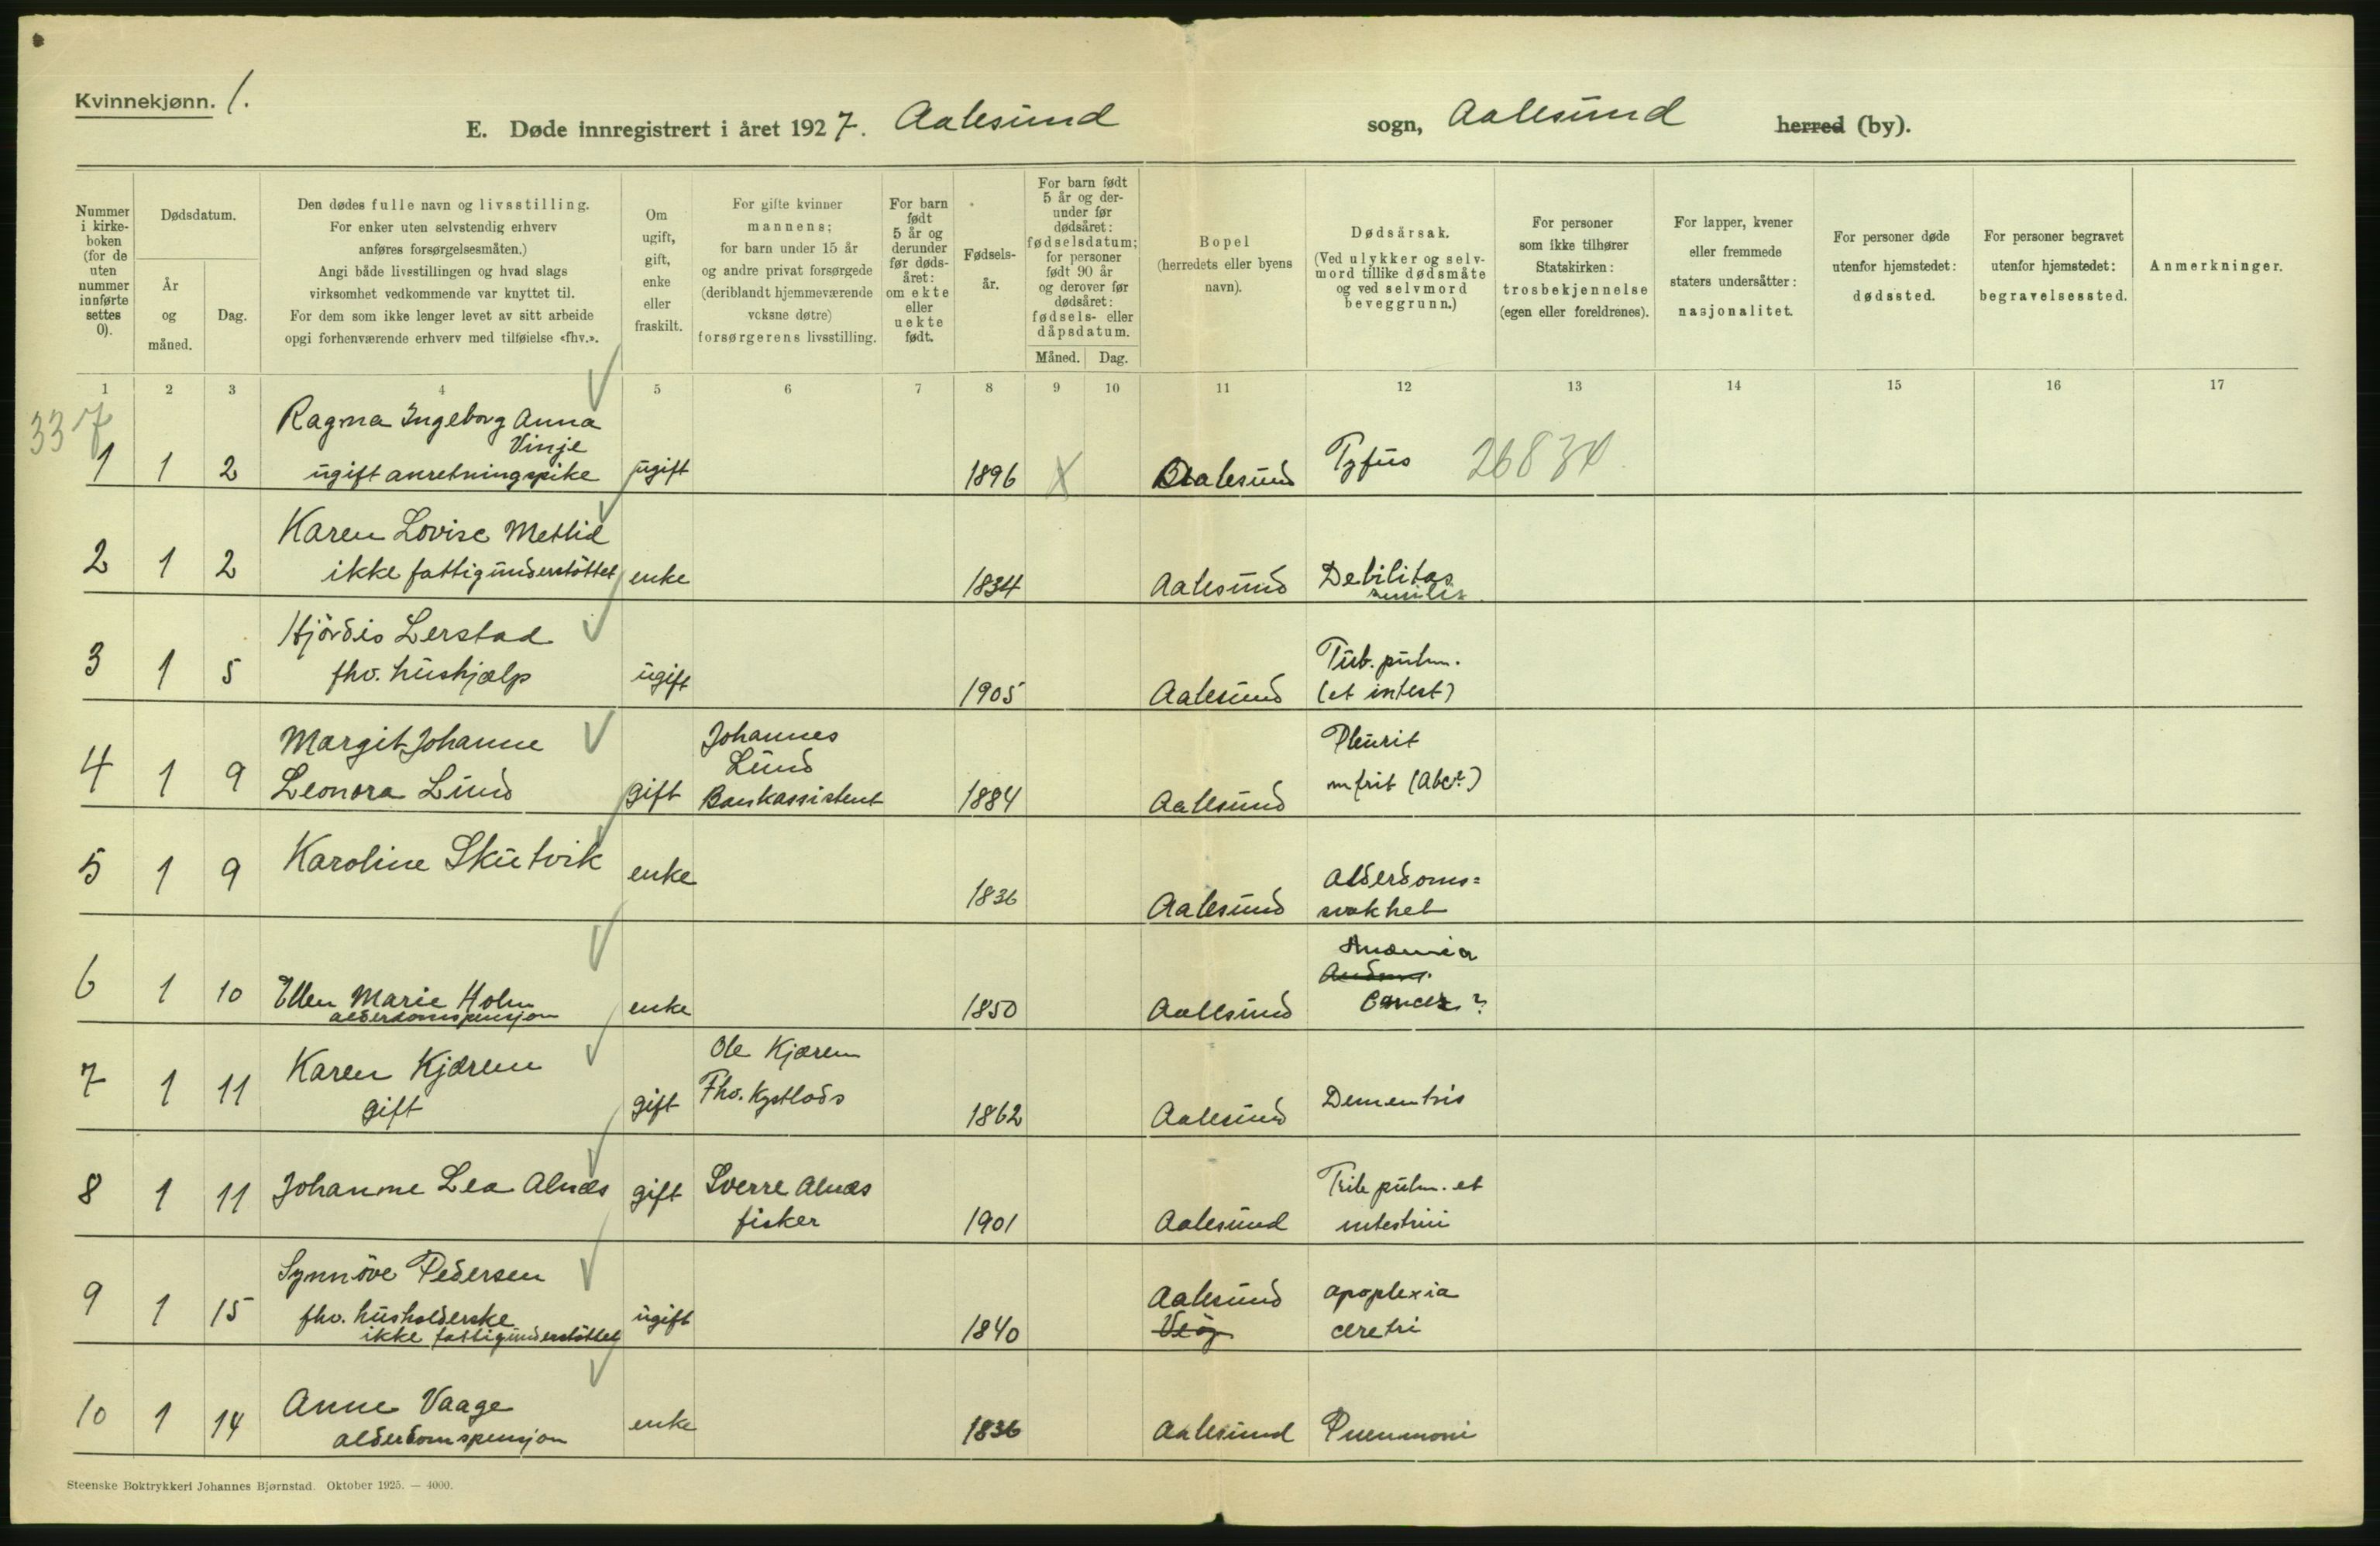 Kvinnekjønn. 1.
E. Døde innregistrert i året 1927. Aalesund sogn, Aalesund herred (by).
Nummer i kirkeboken (for de uten nummer innførte settes 0).
Dødsdatum.
År og måned.
Dag.
Den dødes fulle navn og livsstilling.
For enker uten selvstendig erhverv
anføres forsørgelsesmåten.)
Angi både livsstillingen og hvad slags
virksomhet vedkommende var knyttet til.
For dem som ikke lenger levet av sitt arbeide
opgi forhenværende erhverv med tilføielse «fhv.».
Om ugift, gift, enke eller fraskilt.
For gifte kvinner
mannens;
for barn under 15 år
og andre privat forsørgede
(deriblandt hjemmeværende
voksne døtre)
forsørgerens livsstilling.
For barn født 5 år og derunder før dødsåret: om ekte eller uekte født.
Fødselsår.
For barn født 5 år og derunder før dødsåret: fødselsdatum; for personer født 90 år og derover før dødsåret: fødsels- eller dåpsdatum.
Måned. Dag.
Bopel
(herredets eller byens
navn).
Dødsårsak.
(Ved ulykker og selvmord tillike dødsmåte og ved selvmord beveggrunn.)
For personer
som ikke tilhører
Statskirken:
trosbekjennelse
(egen eller foreldrenes).
For lapper, kvener
eller fremmede
staters undersåtter:
nasjonalitet.
For personer døde
utenfor hjemstedet:
dødssted.
For personer begravet
utenfor hjemstedet:
begravelsessted.
Anmerkninger.
1 2 3 4 5 6 7 8 9 10 11 12 13 14 15 16 17
337
Ragna Ingeborg Anna
Vinje
1 1 2 ugift anretningspike ugift 1896 X Aalesund Tyfus 26834
Karen Lovise Metlid
2 1 2 ikke fattigunderstöttet enke 1834 Aalesund Debilitas
senilis
Hjördis Lerstad
3 1 5 fhv. hushjælp ugift 1905 Aalesund Tub. pulm.
(et intest)
Margit Johanne
4 1 9 Leonora Lund gift Johannes
Lund
Bankassistent 1884 Aalesund Pleurit
5 1 9 Karoline Skutvik enke 1836 Aalesund Alderdoms=
svakhet
6 1 10 Ellen Marie Holm
alderdomspensjon enke 1850 Aalesund Anæmia
Cancer?
7 1 11 Karen Kjærem
gift gift Ole Kjærem
Fhv. Kystlods 1862 Aalesund
8 1 11 Johanne Lea Alnæs gift Sverre Alnæs
fisker 1901 Aalesund pulm. et
Synnöve Pedersen
9 1 15 fhv. husholderske
ikke fattigunderstöttet ugift 1840 Aalesund
Veöy apoplexia
10 1 14 Anne Vaage
alderdomspensjon enke 1836 Aalesund Pneumoni
Steenske Boktrykkeri Johannes Bjørnstad. Oktober 1925. — 4000.